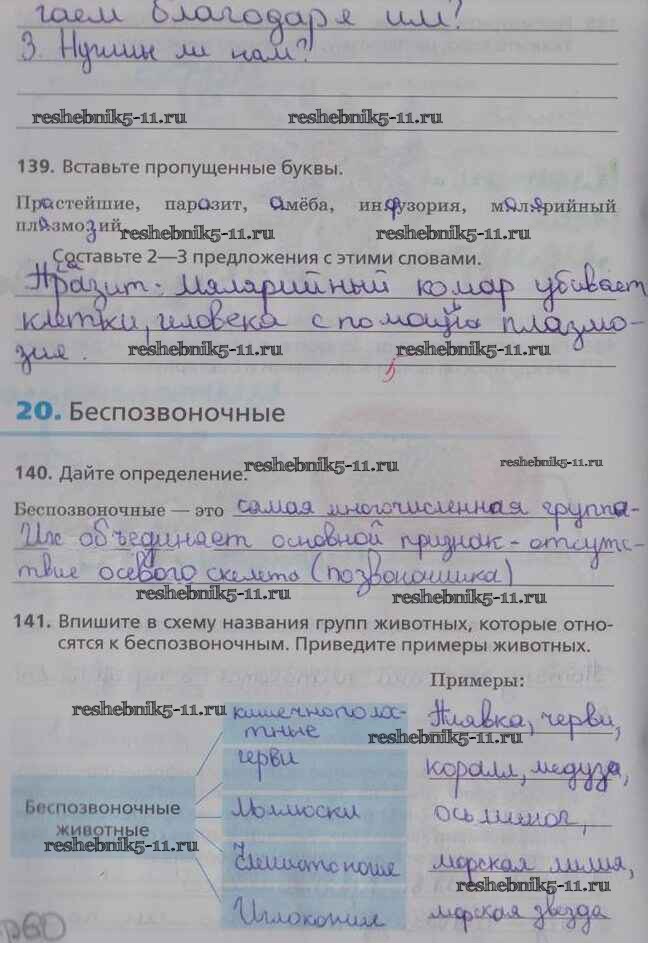 гаем благодаря им?
3. Нужны ли нам?
reshebnik5-11.ru reshebnik5-11.ru
139. Вставьте пропущенные буквы.
Прастейшие, паразит, амёба, инфузория, малярийный
плазмозий
reshebnik5-11.ru reshebnik5-11.ru
Составьте 2—3 предложения с этими словами.
Паразит - Малярийный комар убивает
клетки, человека с помощью плазмо-
зия.
reshebnik5-11.ru reshebnik5-11.ru
20. Беспозвоночные
140. Дайте определение.
reshebnik5-11.ru reshebnik5-11.ru
Беспозвоночные — это самая многочисленная группа-
Их объединает основной признак - отсутс-
твие осевого скелета (позвоночника)
reshebnik5-11.ru reshebnik5-11.ru
141. Впишите в схему названия групп животных, которые отно-
сятся к беспозвоночным. Приведите примеры животных.
Примеры:
reshebnik5-11.ru кишечнополос-
тные Пиявка, черви,
reshebnik5-11.ru
черви коралл, медуза,
Беспозвоночные
животные
Моллюски осьминог,
reshebnik5-11.ru
Членистоногие морская лилия,
reshebnik5-11.ru
Иглокожие морская звезда